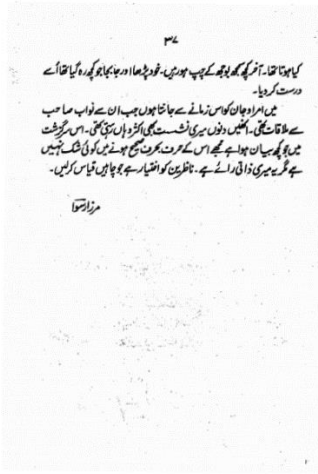 ۳۷
کیا ہوتا تھا۔ آخر کچھ سمجھ بوجھ کے چپ ہو رہیں۔ خود پڑھا اور جا بجا جو کچھ رہ گیا تھا اُسے
درست کر دیا۔
میں امراؤ جان کو اس زمانے سے جانتا ہوں جب ان سے نواب صاحب
سے ملاقات تھی۔ انھیں دنوں میری نشست بھی اکثر وہاں رہتی تھی۔ اس سرگزشت
میں جو کچھ بیان ہوا ہے مجھے اس کے حرف بحرف صحیح ہونے میں کوئی شک نہیں
ہے مگر یہ میری ذاتی رائے ہے۔ ناظرین کو اختیار ہے جو چاہیں قیاس کر لیں۔
مرزا رسوا